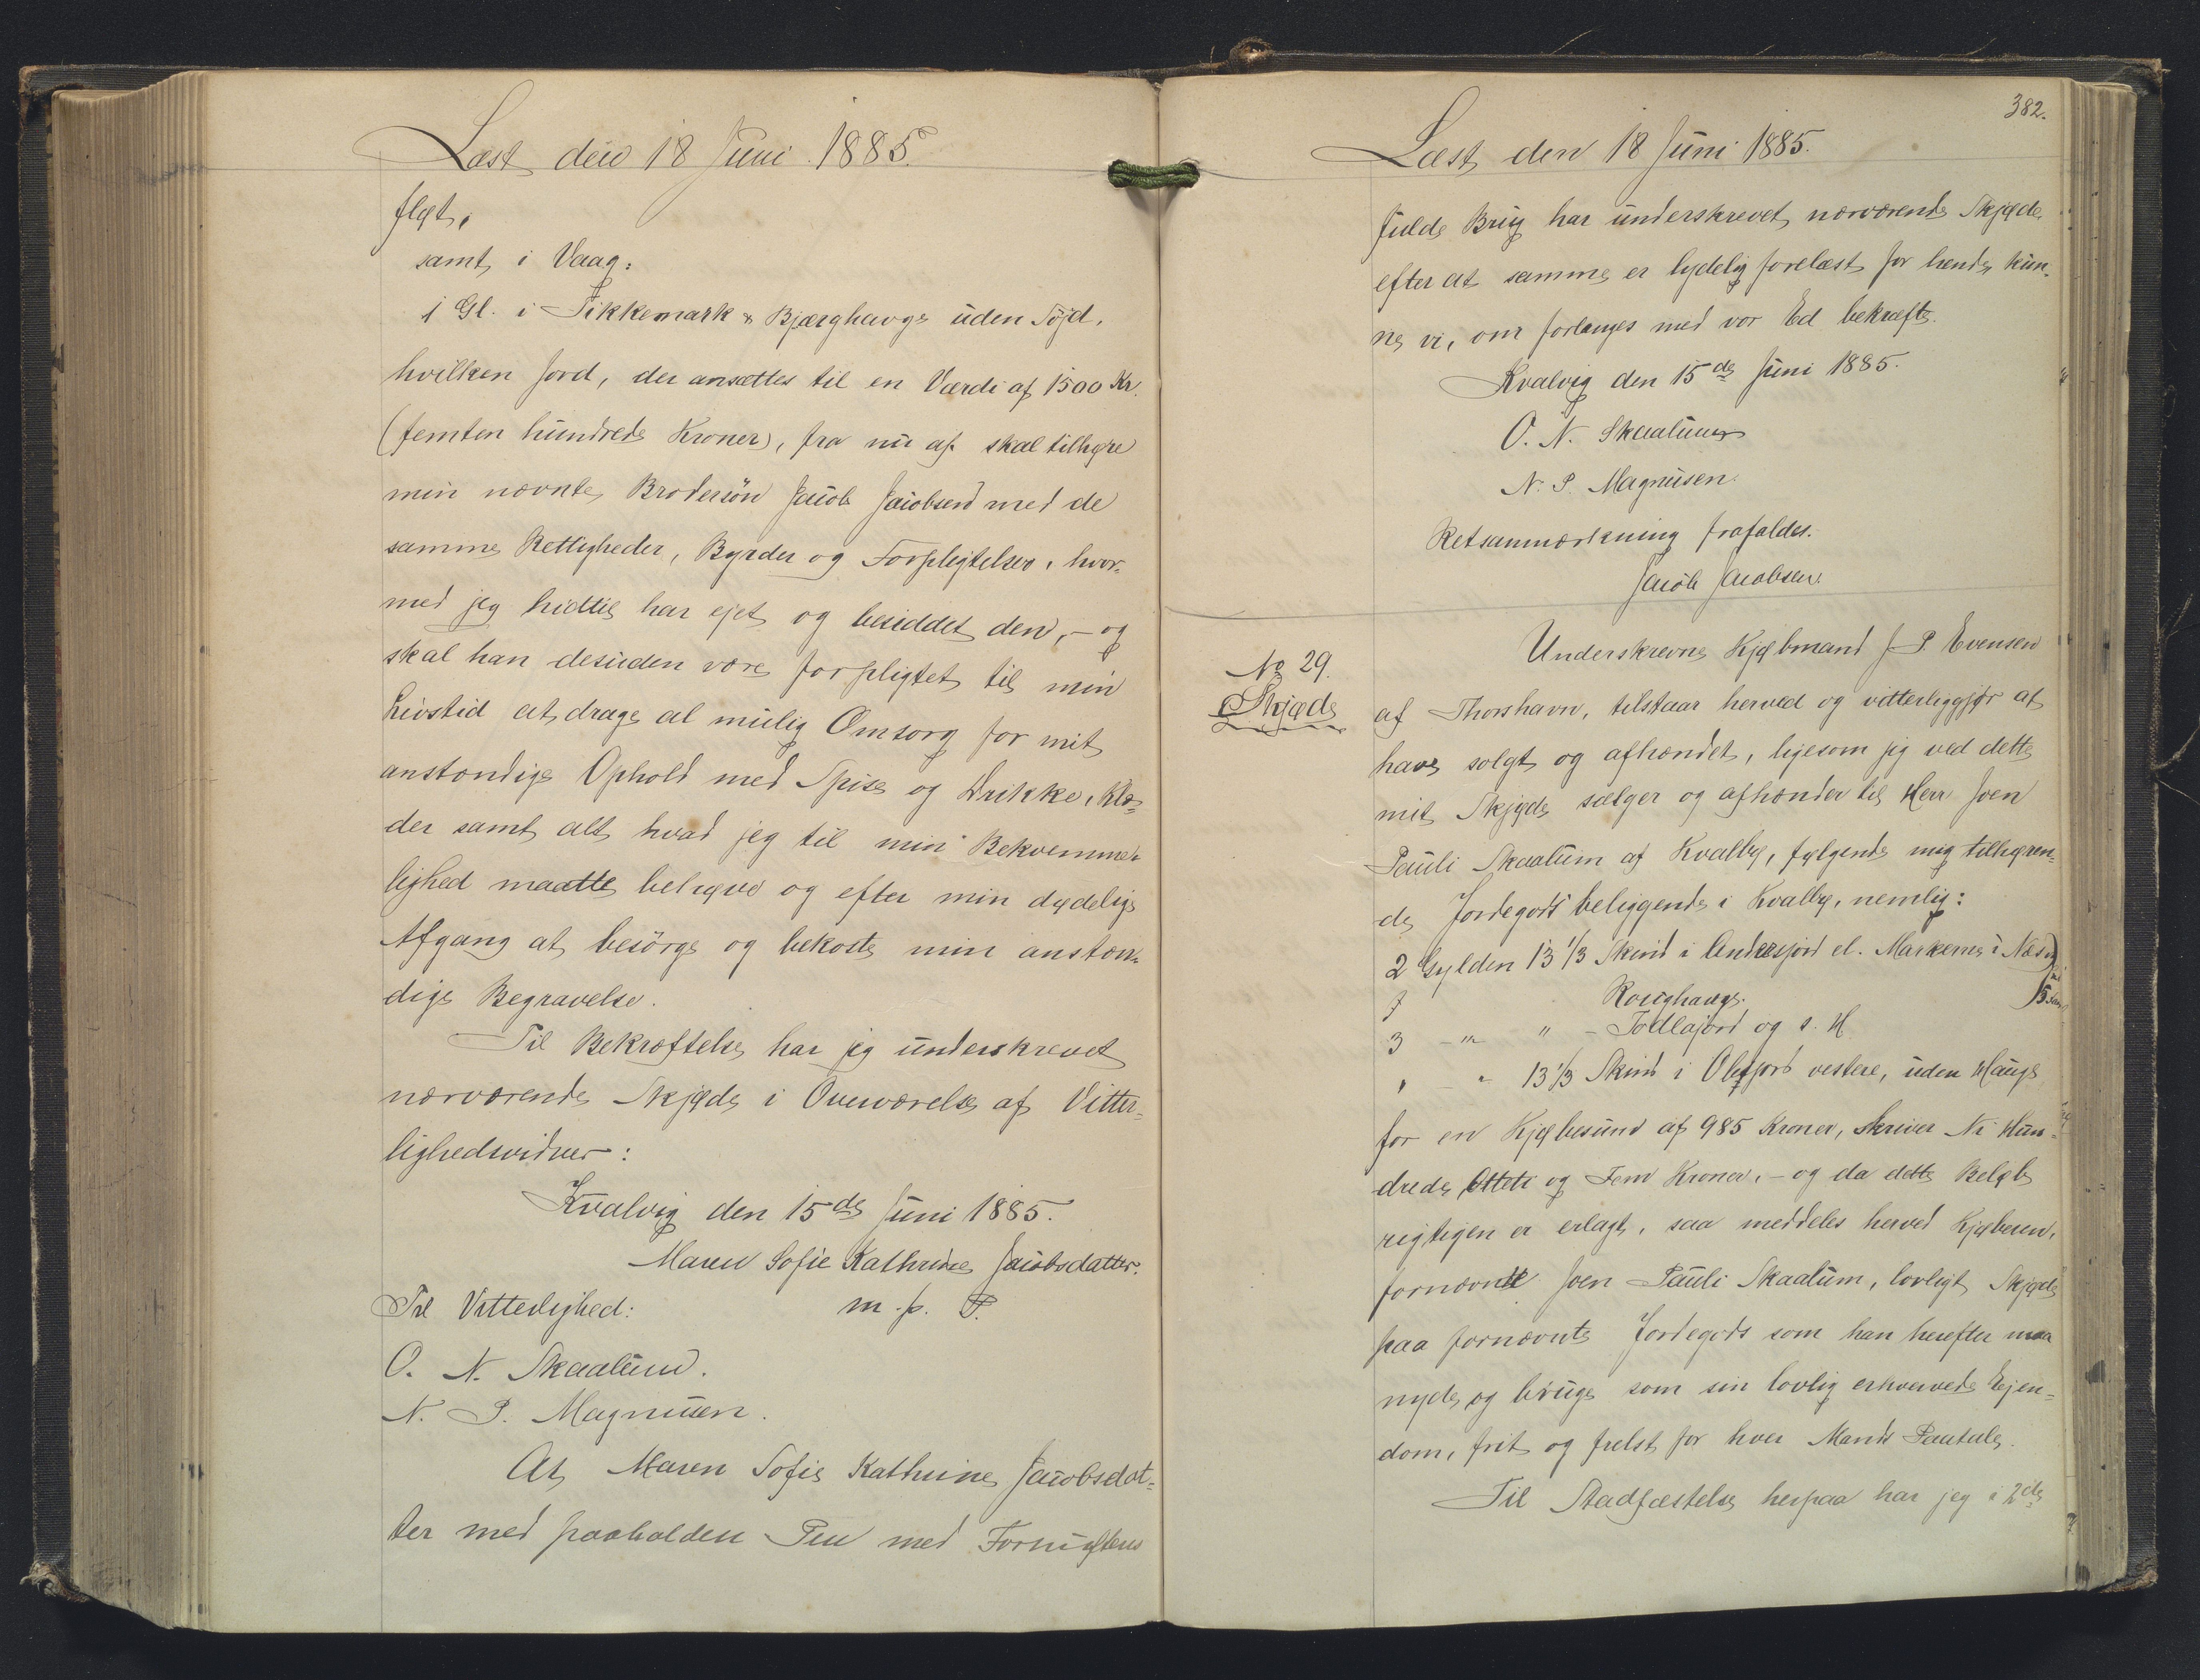 Læst den 18 Juni 1885.
fløt,
samt i Vaag:
1 Gl. i Tikkemark & Bjærghauge uden Töjd,
hvilken Jord, der ansættes til en Værdi af 1500 Kr.
(femten hundrede Kroner), fra nu af skal tilhøre
min nævnte Brodersön Jacob Jacobsen med de
samme Rettigheder, Byrder og Forpligtelser, hvor-
med jeg hidtil har ejet og besiddet den, - og
skal han desuden være forpligtet til min
Livstid at drage al mulig Omsorg for mit
anstændige Ophold med Spise og Drikke, Klæ-
der samt alt hvad jeg til min Bekvemme-
lighed maatte behøve og efter min dødelige
Afgang at besörge og bekoste min anstæn-
dige Begravelse.
Til Bekræftelse har jeg underskrevet
nærværende Skjøde i Overværelse af Vitter-
lighedsvidner:
Kvalvig den 15de Juni 1885.
Maren Sofie Kathrine Jacobsdatter.
m. p. P.
Til Vitterlighed:
O. N. Skaalum.
N. P. Magnussen.
At Maren Sofie Kathrine Jacobsdat-
ter med paaholden Pen med Fornuftens
382.
Læst den 18 Juni 1885.
fulde Brug har underskrevet nærværende Skjøde
efter at samme er lydelig forelæst for hende, kun-
ne vi, om forlanges med vor Ed bekræfte.
Kvalvig den 15de Juni 1885.
O. N. Skaalum
N. P. Magnusen.
Retsanmærkning frafaldes.
Jacob Jacobsen.
No 29.
Skjøde
Underskrevne Kjøbmand J. P. Evensen
af Thorshavn, tilstaar herved og vitterliggjør at
have solgt og afhændet, ligesom jeg ved dette
mit Skjøde sælger og afhænder til Herr Joen
Pauli Skaalum af Kvalbø, følgende mig tilhøren-
de Jordegods beliggende i Kvalbø, nemlig:
2 Gylden 13 1/3 Skind i Andersjord el. Markerne i Næs
Roughauge.
3 - " " - Todlajord og s. H
" - " 13 1/3 Skind i Olejord vestere, uden Hauge
for en Kjøbesum af 985 Kroner, skriver Ni Hun-
drede Otteti og Fem Kroner, - og da dette Beløb
rigtigen er erlagt, saa meddeles herved Kjøberen,
fornævnte Joen Pauli Skaalum, lovligt Skjøde
paa fornævnte Jordegods som han herefter maa
nyde og bruge som sin lovlig erhvervede Ejen-
dom, frit og frelst for hver Mands Paatale.
Til Stadfæstelse herpaa har jeg i 2de